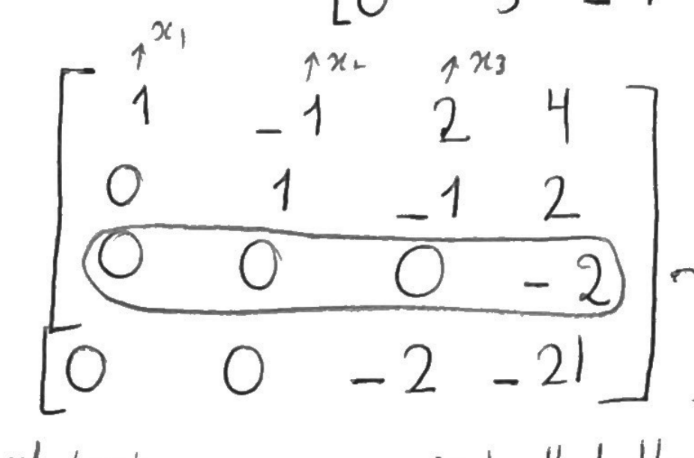 ↑x₁ ↑x₂ ↑x₃
1 -1 2 4
0 1 -1 2
0 0 0 -2
0 0 -2 -21